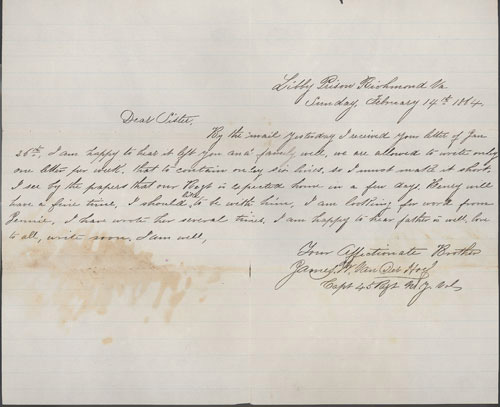 Libby Prison Richmond Va.
Sunday, February 14th 1864.
Dear Sister,
By the mail yesterday I received your letter of Jan
26th, I am happy to hear it left you and family well, we are allowed to write only
one letter per week, that to contain only six lines, so I must make it short,
I see by the papers that our Regt is expected home in a few days, Henry will
have a fine time, I should like to be with him, I am looking for word from
Jennie, I have wrote her several times, I am happy to hear father is well, love
to all, write soon, I am well,
Your Affectionate Brother
James Van Der
Capt 45 Regt N.Y. Vols